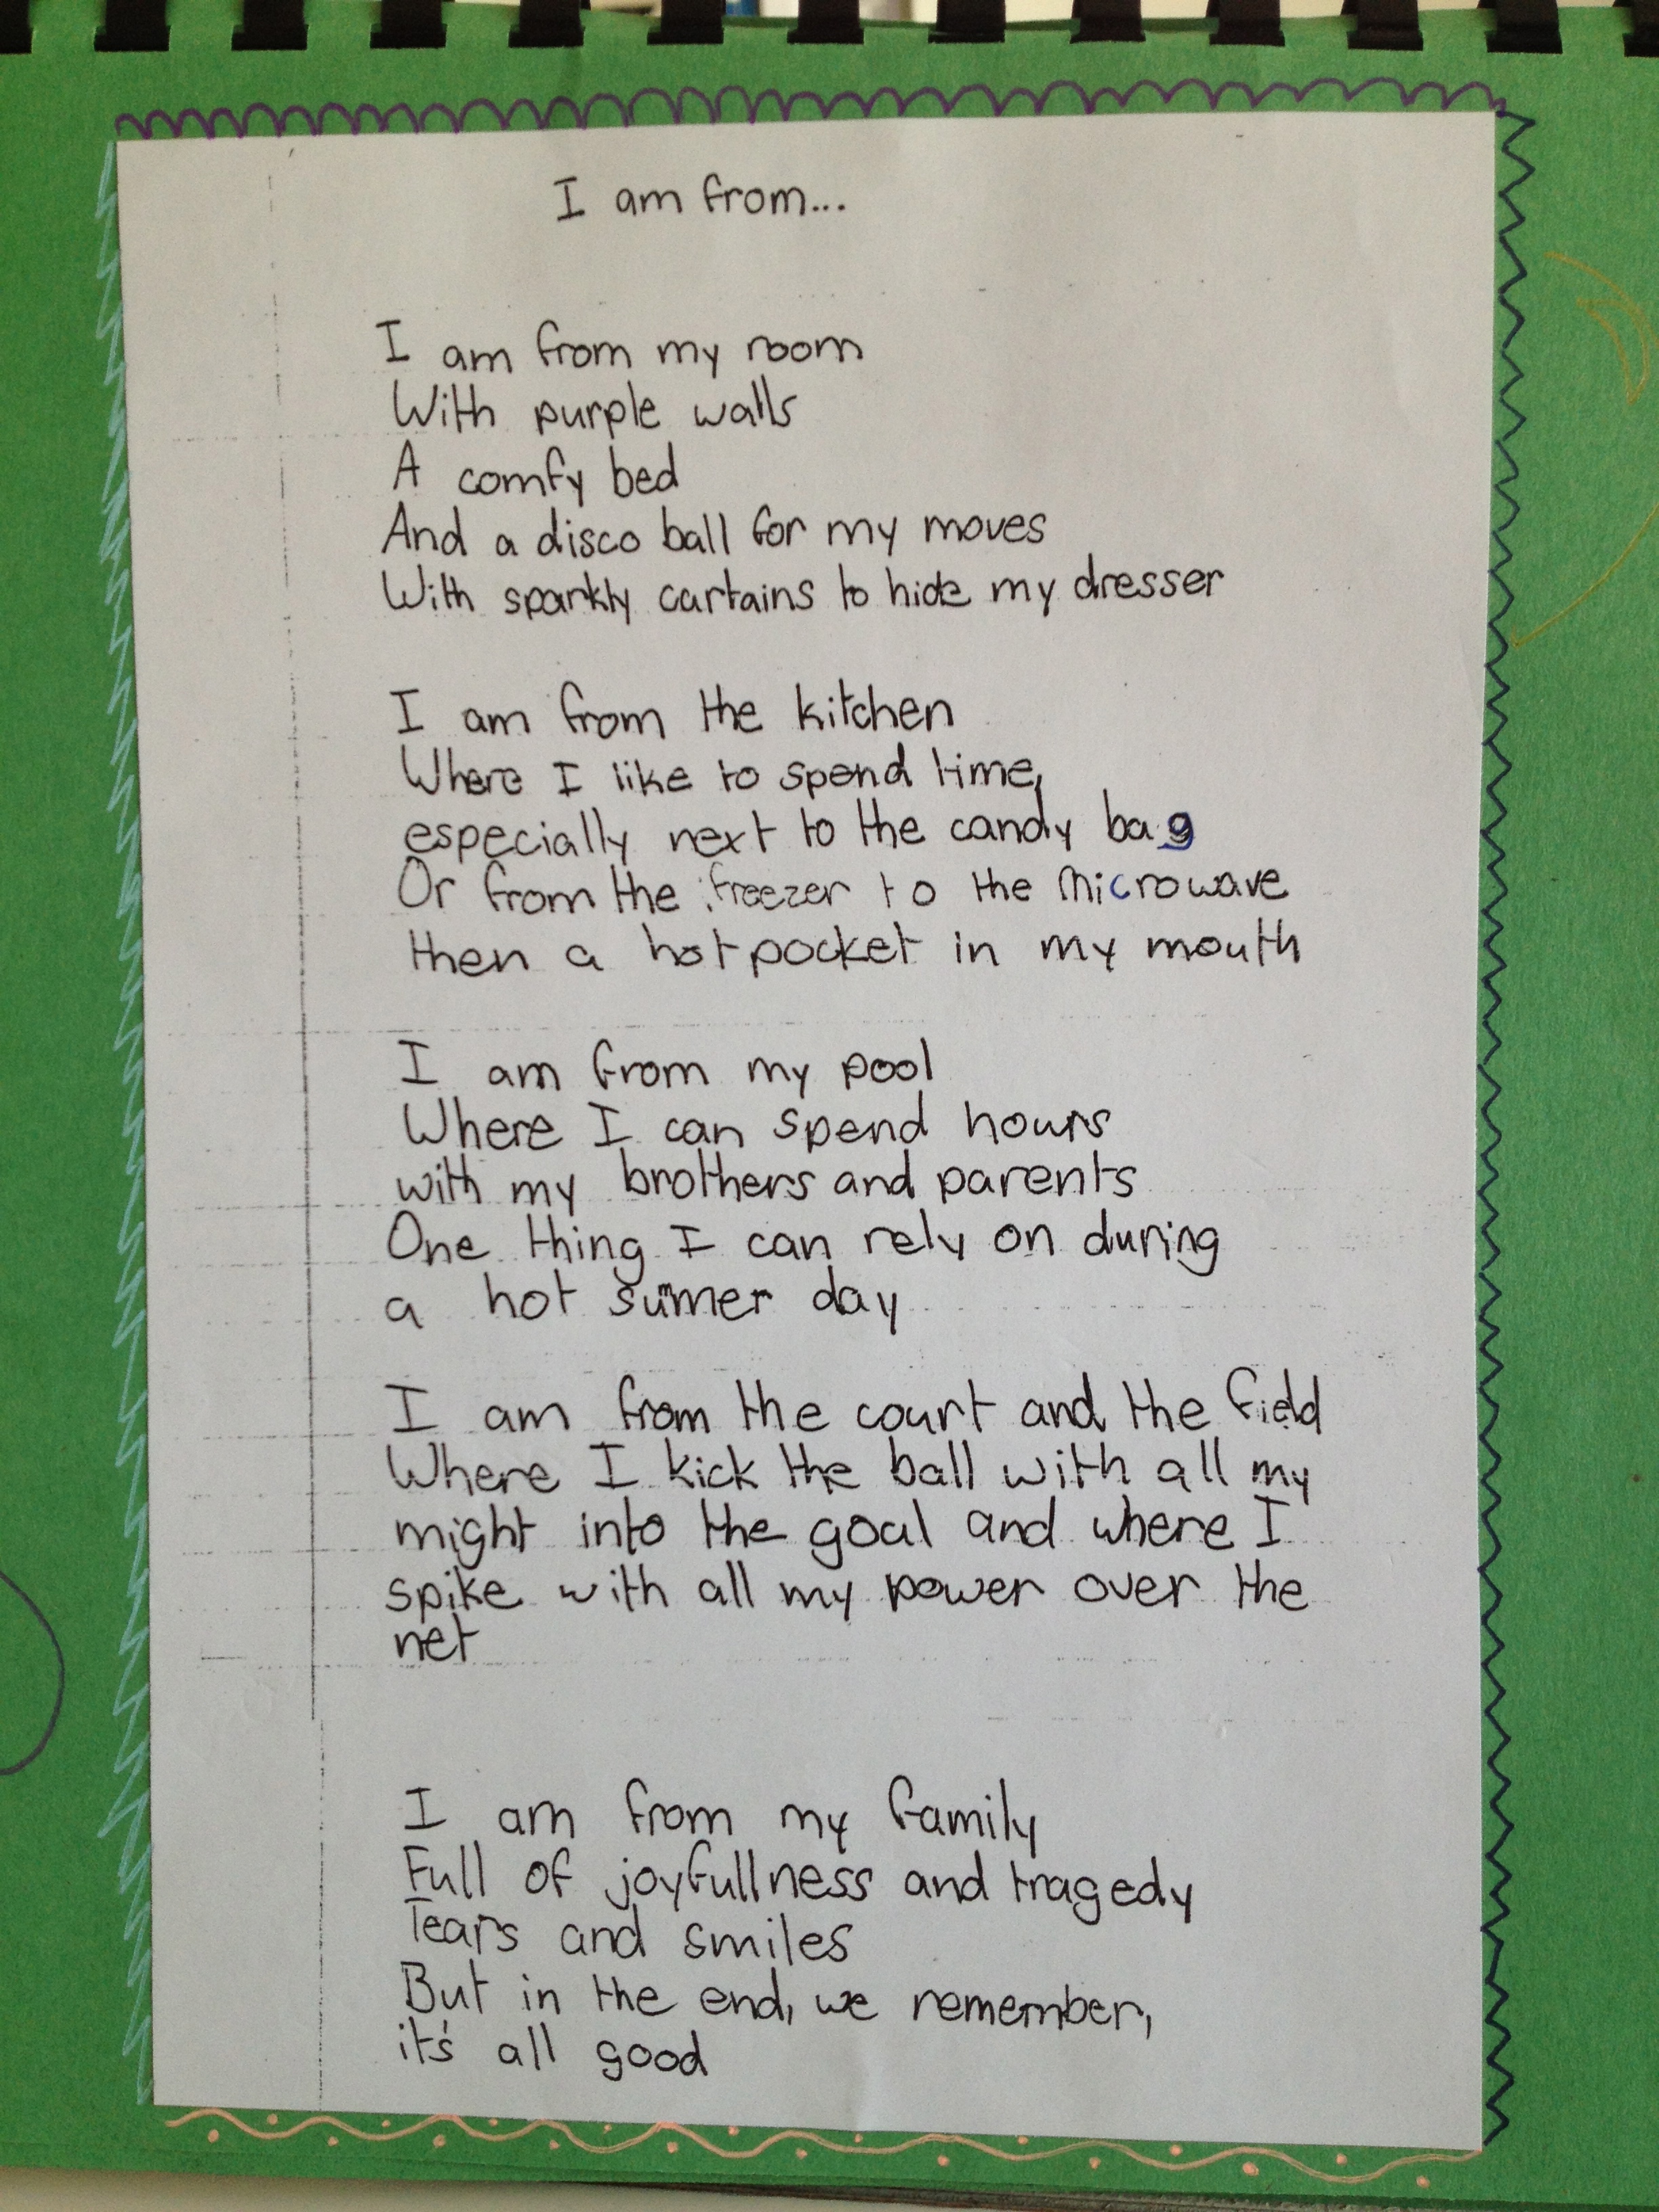 I am from...
I am from my room
With purple walls
A comfy bed
And a disco ball for my moves
With sparkly curtains to hide my dresser
I am from the kitchen
Where I like to spend time,
especially next to the candy bag
Or from the freezer to the microwave
then a hot pocket in my mouth
I am from my pool
Where I can spend hours
with my brothers and parents
One thing I can rely on during
a hot sumer day
I am from the court and the field
Where I kick the ball with all my
might into the goal and where I
spike with all my power over the
net
I am from my family
Full of joyfullness and tragedy
Tears and smiles
But in the end, we remember,
it's all good